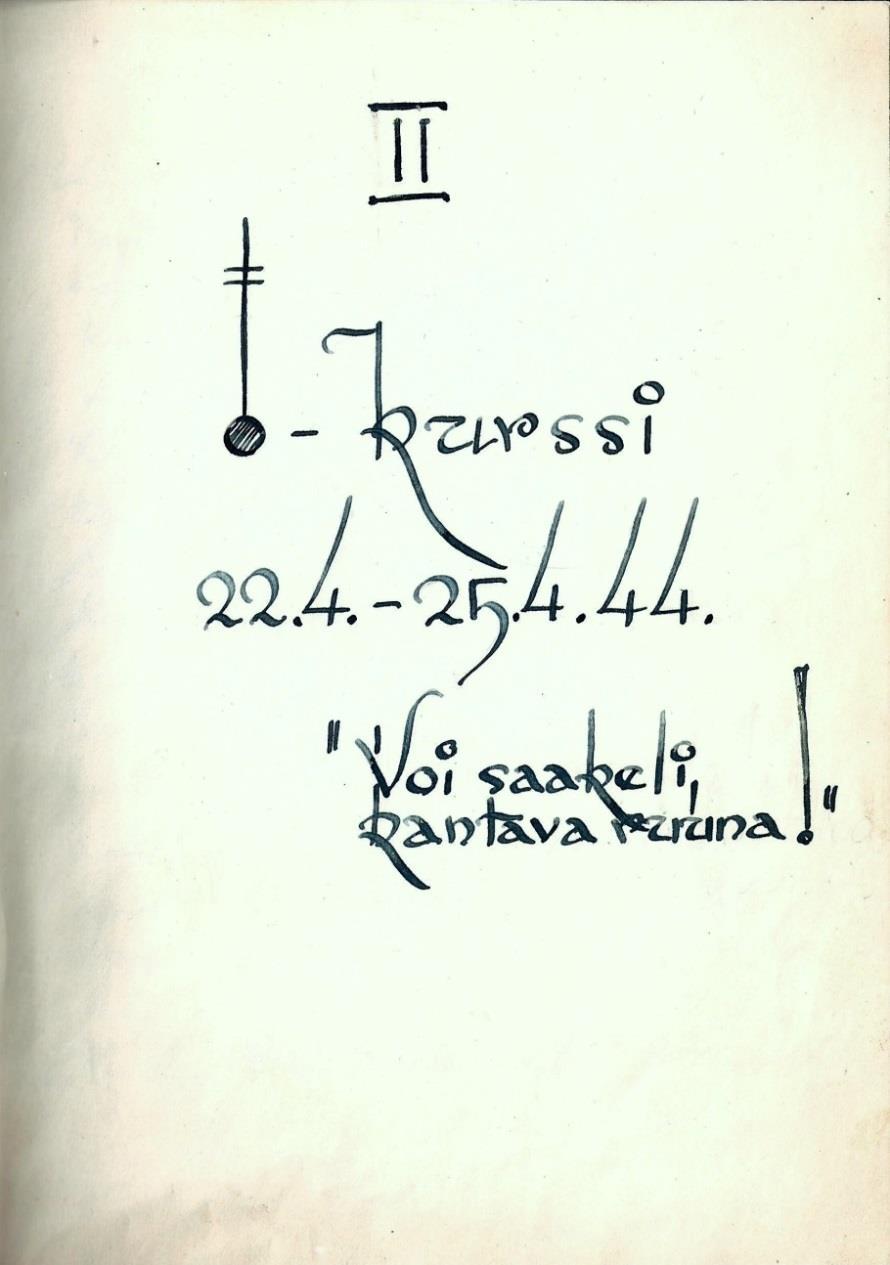 II
- kurssi
22.4. - 25.4.44.
"Voi saakeli,
kantava ruuna!"